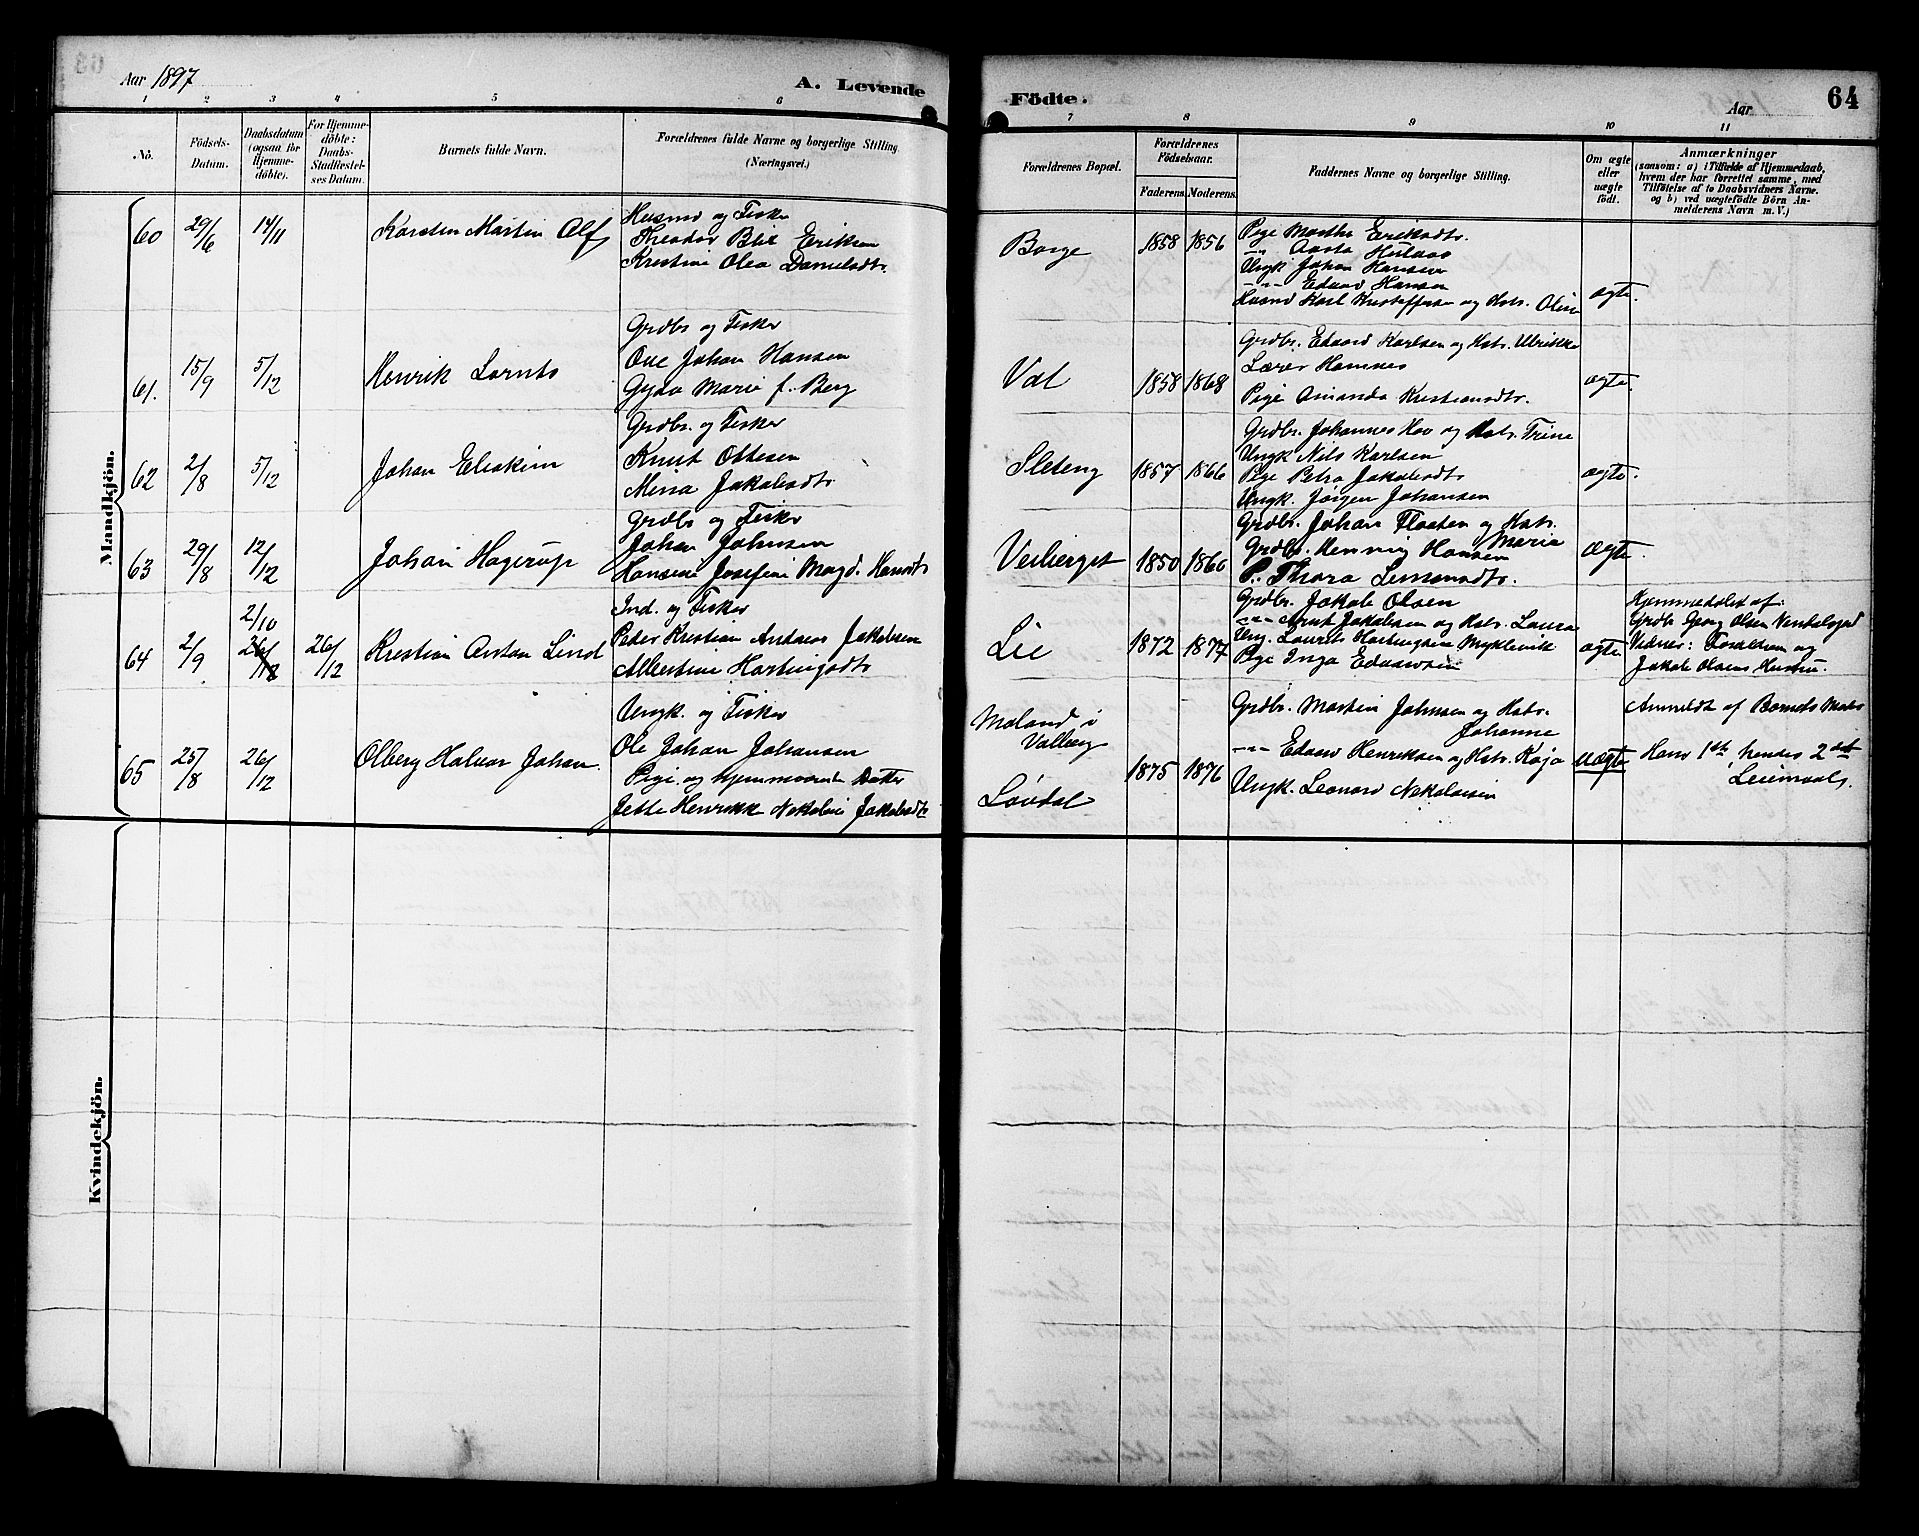 Aar 1897
A. Levende
Födte.
Aar
64
1 2 3 4 5 6 7 8 9 10 11
No.
Födsels-Datum.
Daabsdatum (ogsaa for Hjemme-döbte).
For Hjemme-döbte: Daabs-Stadfæstel-ses Datum.
Barnets fulde Navn.
Forældrenes fulde Navne og borgerlige Stilling
(Næringsvei.)
Forældrenes Bopæl.
Forældrenes Födselsaar.
Faderens. Moderens.
Faddernes Navne og borgerlige Stilling.
Om ægte eller uægte födt.
Anmærkninger
(saasom: a) i Tilfælde af Hjemmedaab,
hvem der har forrettet samme, med
Tilföielse af to Daabsvidners Navne.
og b) ved uægtefödte Börn An-
melderens Navn m. V.)
Mandkjön.
60 29/6 14/11 Karsten Martin Olf
Husmd og Fisker
Theodor Blix Eriksen
Kristine Olea Danielsdtr.
Borge 1858 1856
Pige Marthe Eriksdtr.
-"- Aasta Hulaas
Ungk Johan Hansen
-"- Edvard Hansen
Husmd Karl Kristoffersen og Hstr. Oline
ægte.
61. 15/9 5/12 Henrik Lornts
Grdbr og Fisker
Ove Johan Hansen
Gyda Marie f. Berg
Val 1858 1868
Grdbr. Edvard Karlsen og Hstr. Ulrikke
Lærer Hamnes
Pige Amanda Kristiansdtr.
ægte.
62 2/8 5/12 Johan Eliakim
Grdbr. og Fisker
Knut Ottesen
Mina Jakobsdtr
Sleteng 1857 1866
Grdbr. Johannes Hov og Hstr. Trine
Ungk Nils Karlsen
Pige Petra Jakobsdtr
Ungk. Jørgen Johansen
ægte.
63 29/8 12/12 Johan Hagerup
Grdbr og Fisker
Johan Johnsen
Hansine Josefine Magd. Hansdtr
Veiberget 1850 1860
Grdbr. Johan Floaten og Hstr.
Maria
Grdbr. Henning Hansen
P. Thora Simonsdtr.
Ægte.
64 2/9 2/10 26/12 26/12 Kristian Anton Lind
Ind. og Fisker
Peder Kristian Andreas Jakobsen
Albertine Hartvigsdtr
Lie 1872 1877
Grdbr. Jakob Olsen
-"- Arnt Jakobsen og Hstr. Laura
Ung. Laurits Hartvigsen Myklevik
Pige Inga Edvardsen
ægte
Hjemmedøbt af:
Grdbr Georg Olsen
Vidner: Forældrene og
Jakob Olsens Hustru.
65 25/8 26/12 Olberg Halvor Johan.
Ungk. og Fisker
Ole Johan Johansen
Pige og hjemmeværende Datter
Jette Henrikke Nekoline Jakobsdtr
Moland i
Valberg
Løvdal
1875 1876
Grdbr. Martin Johnsen og Hstr.
Johanne
-"- Edvard Henriksen og Hstr. Kaja
Ungk. Leonard Nekolaisen
uægte
Anmeldt af Barnets Moder
Hans 1ste hendes 2det
Leiermaal.
Kvindekjön.